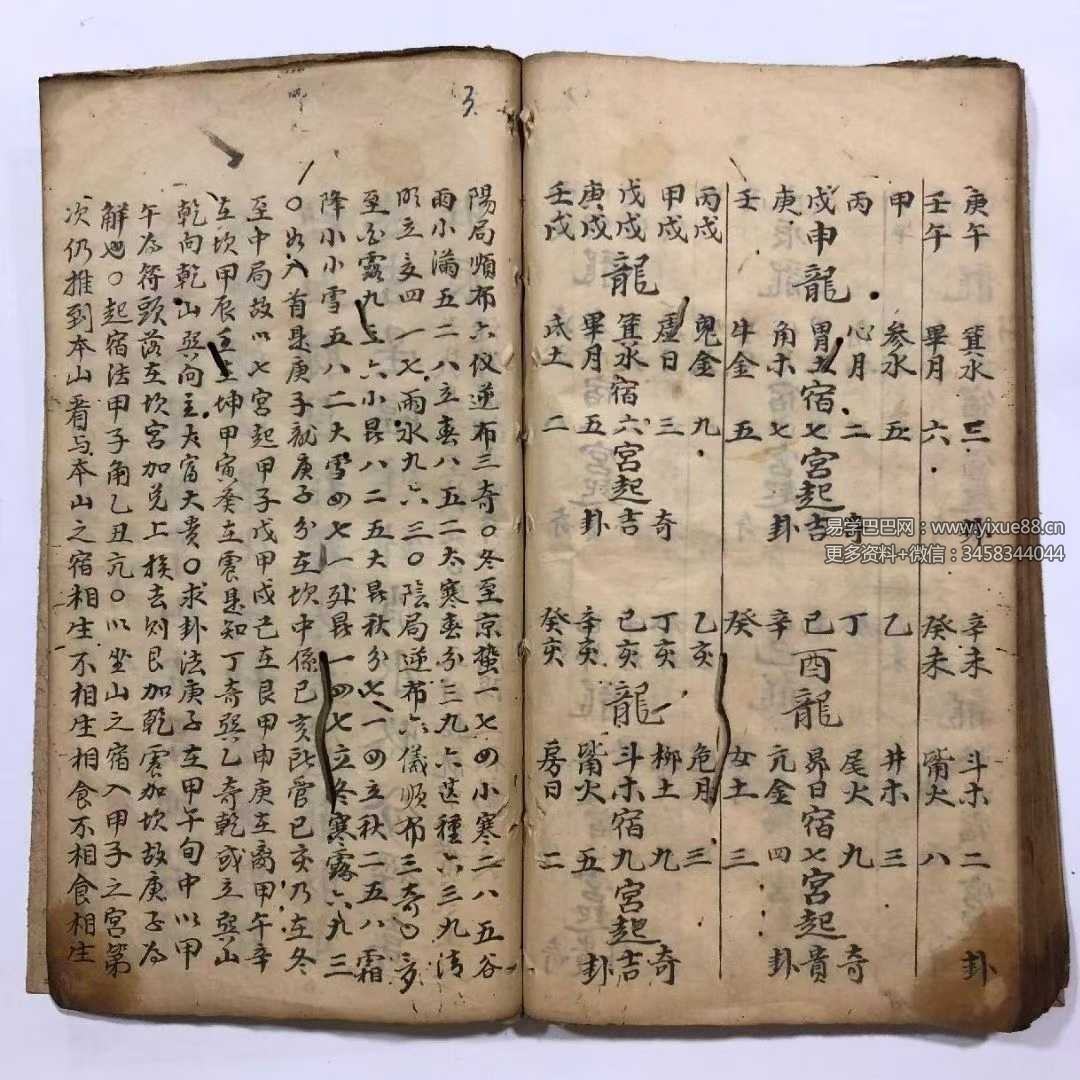 庚午 箕水 三 卦 辛未 斗木 二 卦
壬午 畢月 六 癸未 觜火 八
甲 參水 五 乙 井木 三
丙 心月 二 奇 丁 尾火 九 奇
戊申龍 胃土宿七宮起吉 己酉龍 昴日宿七宮起貴
庚 角木 七 卦 辛 亢金 四 卦
壬 牛金 五 癸 女土 三
丙戌 鬼金 九 乙亥 危月 三
甲戌 虛日 三 奇 丁亥 柳土 九 奇
戊戌龍 箕水宿六宮起吉 己亥龍 斗木宿九宮起吉
庚戌 畢月 五 卦 辛亥 觜火 五 卦
壬戌 氐土 二 癸亥 房日 二
3
陽局順布六仪逆布三奇〇冬至京蟄一七四小寒二八五谷
雨小滿五二八立春八五二大寒春分三九六芒種六三九清
明立夏四一七雨水九六三〇陰局逆布六儀順布三奇〇夏
至白露九三六小暑八二五大暑秋分七一四立秋二五八霜
降小小雪五八二大雪四七一处暑一四七立冬寒露六九三
〇如入首是庚子龍庚子分在坎中係己亥所管己亥乃在冬
至中局故以七宮起甲子戊甲戌己在艮甲申庚在離甲午辛
在坎甲辰壬在坤甲寅癸在震是知丁奇巽乙奇乾或立巽山
乾向乾山巽向主大富大貴〇求卦法庚子在甲午旬中以甲
午為符頭落在坎宮加兌上挨去則艮加乾震加坎故庚子為
解也〇起宿法甲子角乙丑亢〇以坐山之宿入甲子之宮第
次仍推到本山看与本山之宿相生不相生相食不相食相生
易学巴巴网：www.yixue88.cn
更多资料+微信：3458344044